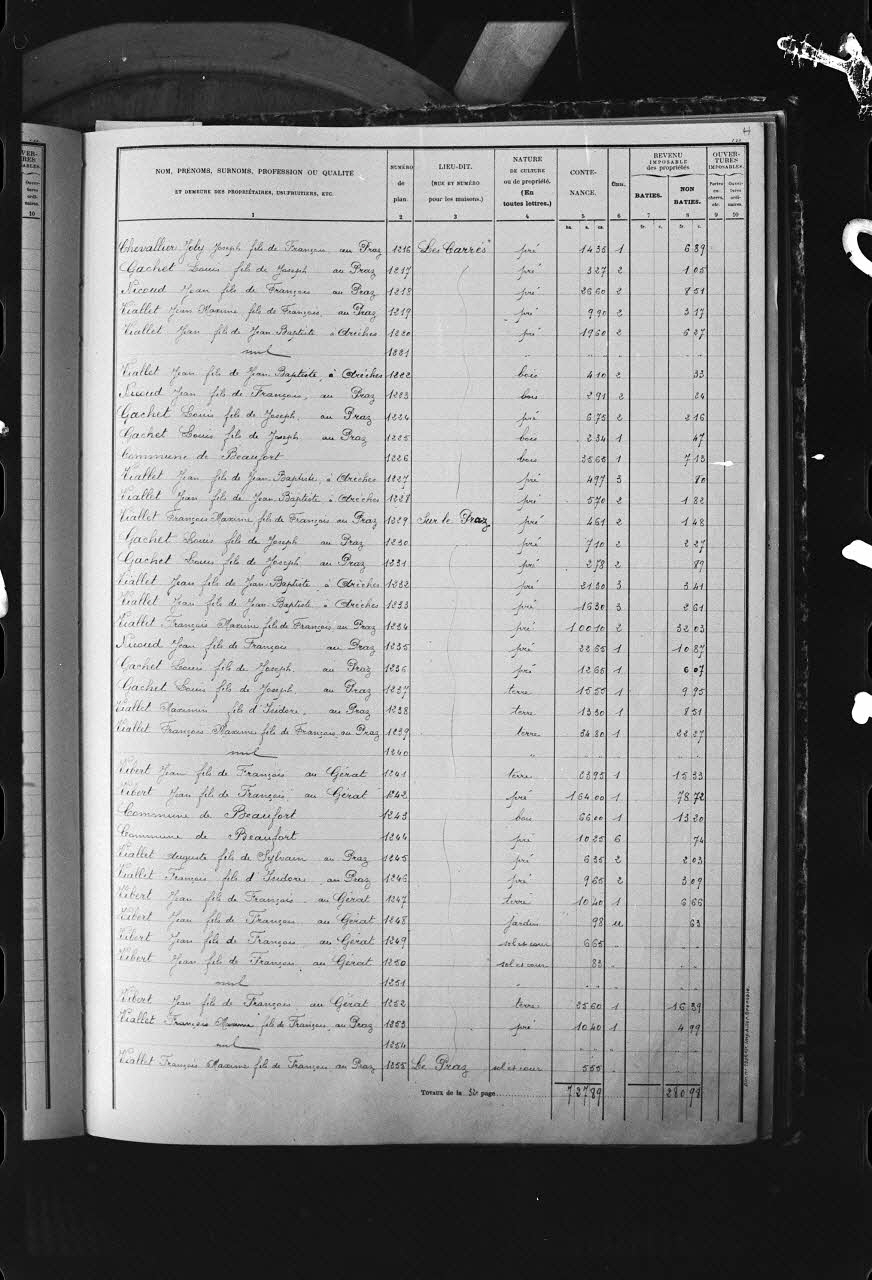 NOM, PRÉNOMS, SURNOMS, PROFESSION OU QUALITÉ
ET DEMEURE DES PROPRIÉTAIRES, USUFRUITIERS, ETC.
1
NUMÉRO de plan. 2
LIEU-DIT. (RUE ET NUMÉRO pour les maisons.) 3
NATURE DE CULTURE ou de propriété. (En toutes lettres.) 4
CONTENANCE. 5
Class. 6
REVENU IMPOSABLE des propriétés
BATIES. 7
NON BATIES. 8
OUVERTURES IMPOSABLES.
Portes cochères, etc. 9
Ouvertures ordinaires. 10
HA. A. CA. Fr. C. Fr. C.
Chevallier Joly Joseph fils de François au Praz 1216 Les Carres pré 14 35 1 6 89
Gachet Louis fils de Joseph au Praz 1217 pré 3 27 2 1 05
Nicoud Jean fils de François au Praz 1218 pré 26 60 2 8 51
Viallet Jean Maxime fils de François, au Praz 1219 pré 9 90 2 3 17
Viallet Jean fils de Jean Baptiste à Arèches 1220 pré 19 60 2 6 27
nul 1221
Viallet Jean fils de Jean Baptiste, à Arèches 1222 bois 4 10 2 33
Nicoud Jean fils de François, au Praz 1223 bois 2 91 2 24
Gachet Louis fils de Joseph, au Praz 1224 pré 6 75 2 2 16
Gachet Louis fils de Joseph au Praz 1225 bois 2 34 1 47
Commune de Beaufort 1226 bois 35 65 1 7 13
Viallet Jean fils de Jean Baptiste, à Arèches 1227 pré 4 97 3 80
Viallet Jean fils de Jean Baptiste à Arèches 1228 pré 5 70 2 1 82
Viallet François Maxime fils de François au Praz 1229 Sur le Praz pré 4 61 2 1 48
Gachet Louis fils de Joseph au Praz 1230 pré 7 10 2 2 27
Gachet Louis fils de Joseph au Praz 1231 pré 2 78 2 89
Viallet Jean fils de Jean Baptiste à Arèches 1232 pré 21 30 3 3 41
Viallet Jean fils de Jean Baptiste à Arèches 1233 pré 16 30 3 2 61
Viallet François Maxime fils de François au Praz 1234 pré 1 00 10 2 32 03
Nicoud Jean fils de François au Praz 1235 pré 22 65 1 10 87
Gachet Louis fils de Joseph au Praz 1236 pré 12 65 1 6 07
Gachet Louis fils de Joseph, au Praz 1237 terre 15 55 1 9 95
Viallet Maximin fils d'Isidore, au Praz 1238 terre 13 30 1 8 51
Viallet François Maxime fils de François, au Praz 1239 terre 34 80 1 22 27
nul 1240
Vibert Jean fils de François au Gérat 1241 terre 23 95 1 15 33
Vibert Jean fils de François au Gérat 1242 pré 1 64 00 1 78 72
Commune de Beaufort 1243 bois 66 00 1 13 20
Commune de Beaufort 1244 pré 10 25 6 74
Viallet Auguste fils de Sylvain au Praz 1245 pré 6 35 2 2 03
Viallet François fils d'Isidore, au Praz 1246 pré 9 65 2 3 09
Vibert Jean fils de François, au Gérat 1247 terre 10 40 1 6 66
Vibert Jean fils de François au Gérat 1248 jardin 98 u 63
Vibert Jean fils de François au Gérat 1249 sol et cour 6 65
Vibert Jean fils de François au Gérat 1250 sol et cour 83
nul 1251
Vibert Jean fils de François au Gérat 1252 terre 25 60 1 16 39
Viallet François Maxime fils de François, au Praz 1253 pré 10 40 1 4 99
nul 1254
Viallet François Maxime fils de François au Praz 1255 Le Praz sol et cour 5 55
Totaux de la page 7 27 89 280 98